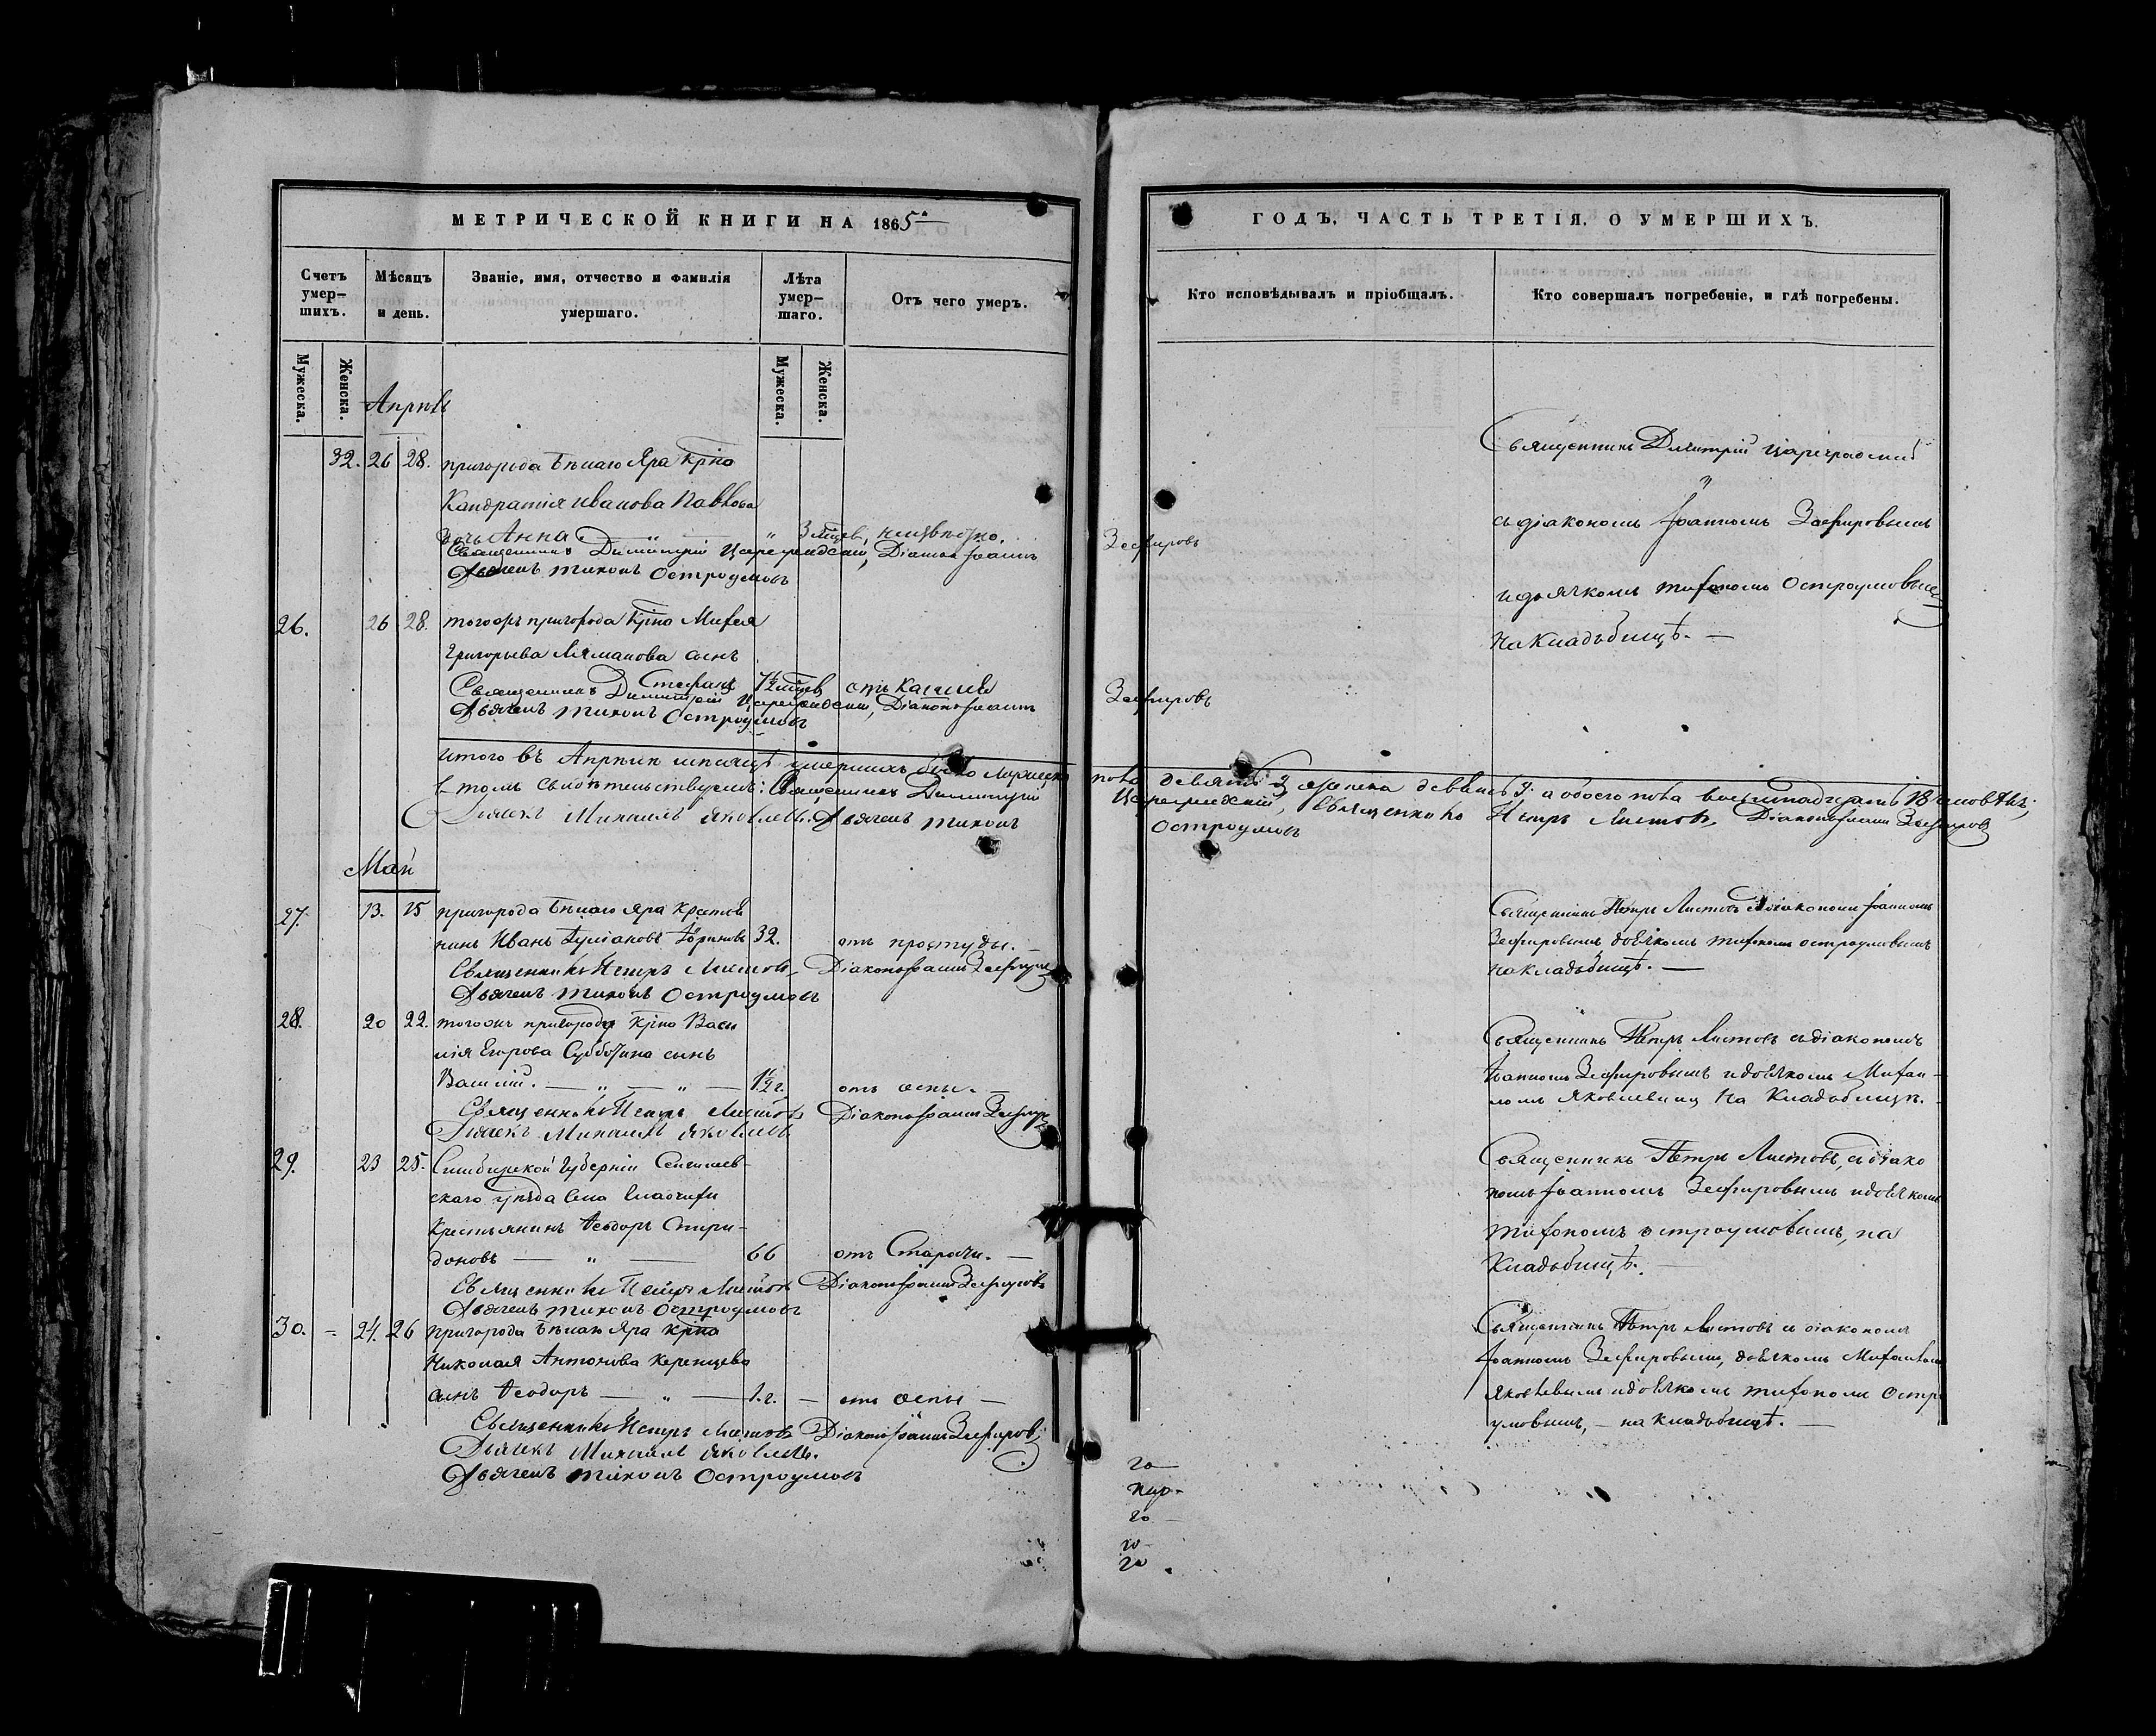 МЕТРИЧЕСКОЙ КНИГИ НА 1865
Счетъ умер-шихъ.
Мѣсяцъ и день.
Званіе, имя, отчество и фамилія умершаго.
Лѣта умер-шаго.
Отъ чего умеръ.
Мужеска.
Женска.
Мужеска.
Женска.
Апрѣль
32. 26 28. пригорода Бѣлаго Яра кр̃на
Кандратія Иванова Павлова
дочь Анна. — " — " 3 мѣсц., неизвѣстно.
Священникъ Димитрій Цареградскій, Діаконъ Іоаннъ
Дьячекъ Тихонъ Остроумовъ
26. 26 28. тогожъ пригорода кр̃на Михея
Григорьева сынъ
Стефанъ отъ кашля
Священникъ Димитрій Цареградскій, Діаконъ Іоаннъ
Дьячекъ Тихонъ Остроумовъ
Итого въ Апрѣлѣ мѣсяцѣ умершихъ было мужеска
въ томъ свидѣтельствуемъ: Священникъ Димитрій
Дьячекъ Михаилъ Яковлевъ. Дьячекъ Тихонъ
Май
27. 13. 15 пригорода Бѣлаго Яра Крестья
нинъ Иванъ 32. отъ простуды. —
Священникъ Петръ Листовъ, Діаконъ Іоаннъ Зефировъ
Дьячекъ Тихонъ Остроумовъ
28. 20 22. тогожъ пригорода кр̃на Васи
лія Егорова Субботина сынъ
Василій. — " — " — 1½ г. отъ оспы. —
Священникъ Петръ Листовъ Діаконъ Іоаннъ Зефировъ
Дьячекъ Михаилъ Яковлевъ
29. 23 25. Симбирской Губерніи Сенгилеев-
скаго уѣзда села
Крестьянинъ Ѳеодоръ Спири-
доновъ — " — 66 отъ Старости. —
Священникъ Петръ Листовъ Діаконъ Іоаннъ Зефировъ
Дьячекъ Тихонъ Остроумовъ
30. - 24. 26 пригорода Бѣлаго Яра кр̃на
Николая Антонова Керенцева
сынъ Ѳеодоръ — " — 1. г. — отъ оспы —
Священникъ Петръ Листовъ Діаконъ Іоаннъ Зефировъ
Дьячекъ Михаилъ Яковлевъ.
Дьячекъ Тихонъ Остроумовъ
ГОДЪ, ЧАСТЬ ТРЕТІЯ, О УМЕРШИХЪ.
Кто исповѣдывалъ и пріобщалъ.
Кто совершалъ погребеніе, и гдѣ погребены.
Священникъ Димитрій Цареградскій
съ діакономъ Іоанномъ Зефировымъ
Зефировъ
и дьячкомъ Тихономъ Остроумовымъ
на кладбищѣ. —
Зефировъ
пола девять 9 женска девять 9. а обоего пола восемнадцать 18 человѣкъ;
Цареградскій, Священникъ Петръ Листовъ, Діаконъ Іоаннъ Зефировъ
Остроумовъ
Священникъ Петръ Листовъ съ діакономъ Іоанномъ
Зефировымъ, дьячкомъ Тихономъ Остроумовымъ
на кладбищѣ. —
Священникъ Петръ Листовъ съ діакономъ
Іоанномъ Зефировымъ и дьячкомъ Михаи-
ломъ Яковлевымъ на кладбищѣ.
Священникъ Петръ Листовъ, съ діако
номъ Іоанномъ Зефировымъ и дьячкомъ
Тихономъ Остроумовымъ, на
кладбищѣ.
Священникъ Петръ Листовъ съ діакономъ
Іоанномъ Зефировымъ, дьячкомъ Михаиломъ
Яковлевымъ и дьячкомъ Тихономъ Остро
умовымъ, — на кладбищѣ. —
го
го
го
го